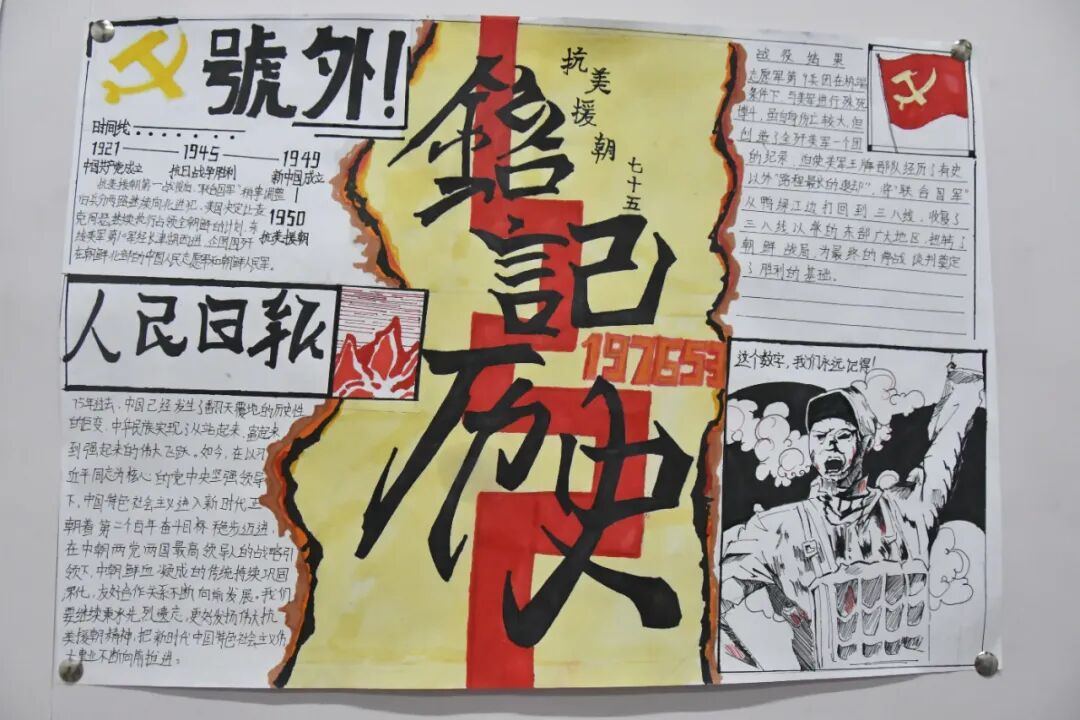 號外!
时间线:
1921 — 1945 — 1949
中国共产党成立 抗日战争胜利 新中国成立
1950
抗美援朝
抗美援朝第一战役后,"联合国军"稍事调整
在朝鲜北部的中国人民志愿军和朝鲜人民军。
人民日报
75年过去,中国已经发生了翻天覆地的历史性
的巨变,中华民族实现了从站起来、富起来
到强起来的伟大飞跃。如今,在以习
近平同志为核心的党中央坚强领导
下,中国特色社会主义进入新时代正
朝着第二个百年奋斗目标稳步迈进,
在中朝两党两国最高领导人的战略引
领下,中朝鲜血凝成的传统持续巩固
深化,友好合作关系不断向前发展。我们
要继续秉承先烈遗志,更好发扬伟大抗
美援朝精神,把新时代中国特色社会主义伟
大事业不断向前推进。
抗美援朝
七十五
銘記
历史
197653
战役结果
志愿军第9兵团在极端
条件下,与美军进行殊死
博斗,虽自身伤亡较大,但
创造了全歼美军一个团
的纪录,迫使美军王牌部队经历了有史
以外"路程最长的退却",将"联合国军"
从鸭绿江边打回到三八线,收复了
三八线以北的东部广大地区,扭转了
朝鲜战局,为最终的停战谈判奠定
了胜利的基础。
这个数字,我们永远记得!